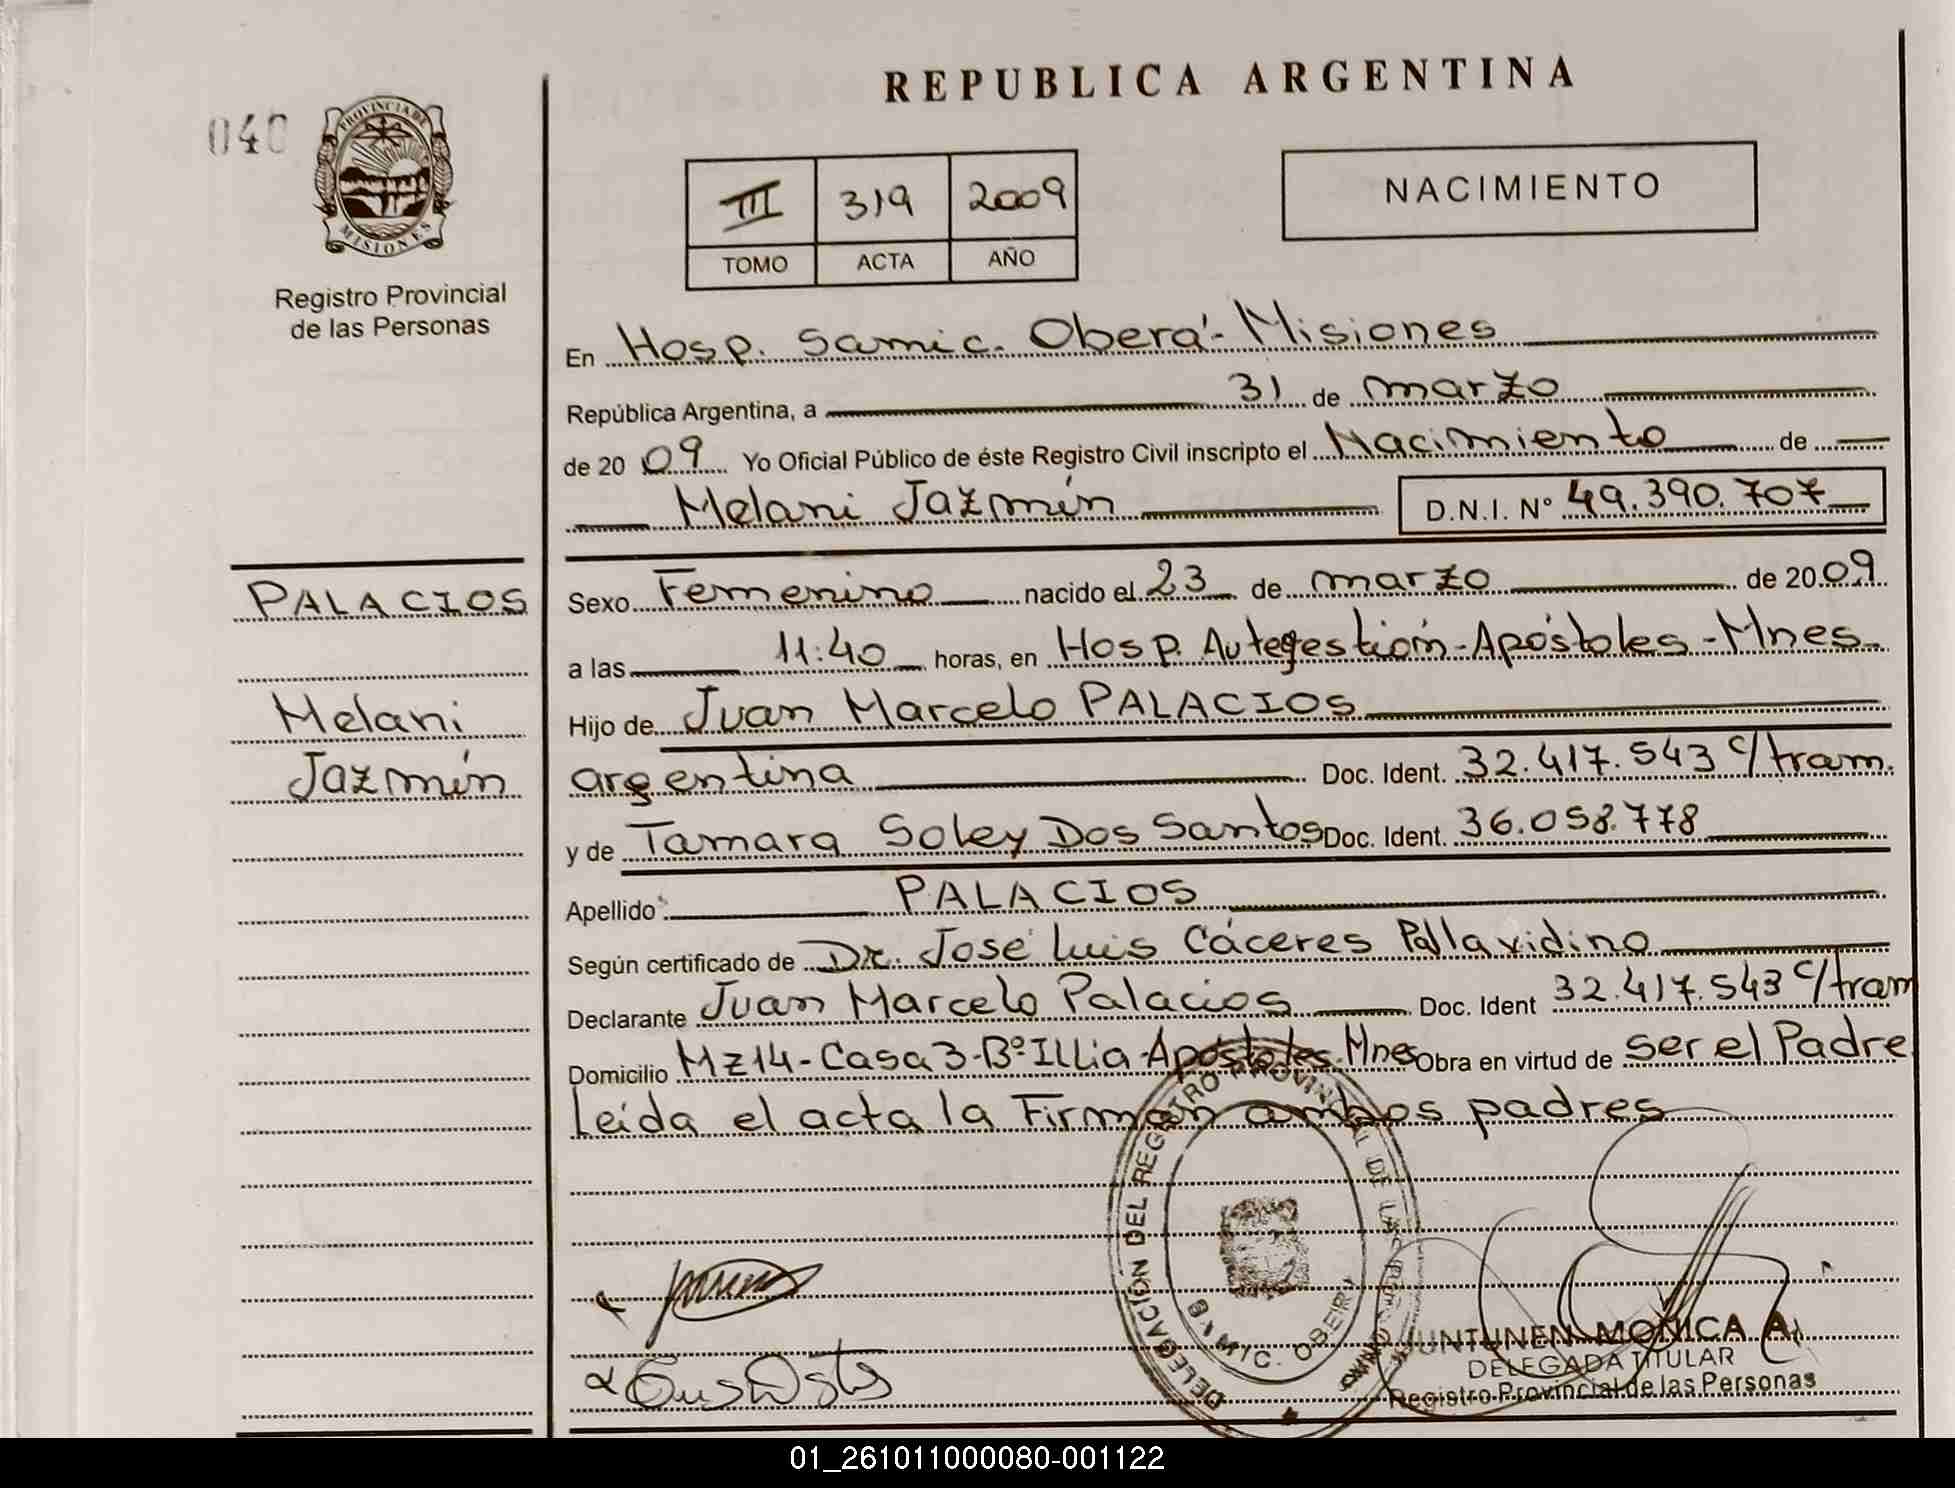 REPUBLICA ARGENTINA
040
PROVINCIA DE
MISIONES
Registro Provincial
de las Personas
III 319 2009
TOMO ACTA AÑO
NACIMIENTO
En Hosp. Samic. Oberá - Misiones
República Argentina, a 31 de marzo
de 2009 Yo Oficial Público de éste Registro Civil inscripto el Nacimiento de
Melani Jazmín D.N.I. Nº 49.390.707
PALACIOS
Melani
Jazmín
Sexo Femenino nacido el 23 de marzo de 2009
a las 11:40 horas, en Hosp. Autegestión - Apóstoles - Mnes.
Hijo de Juan Marcelo PALACIOS
argentina Doc. Ident. 32.417.543 c/tram.
y de Tamara Soley Dos Santos Doc. Ident. 36.058.778
Apellido PALACIOS
Según certificado de Dr. José Luis Cáceres Pallavidino
Declarante Juan Marcelo Palacios Doc. Ident 32.417.543 c/tram
Domicilio Mz 14 - Casa 3 - Bº Illia - Apóstoles. Mnes Obra en virtud de ser el Padre
Leída el acta la Firman ambos padres
DELEGACIÓN DEL REGISTRO PROVINCIAL DE LAS
JUNTUNEN MONICA A.
DELEGADA TITULAR
Registro Provincial de las Personas
01_261011000080-001122